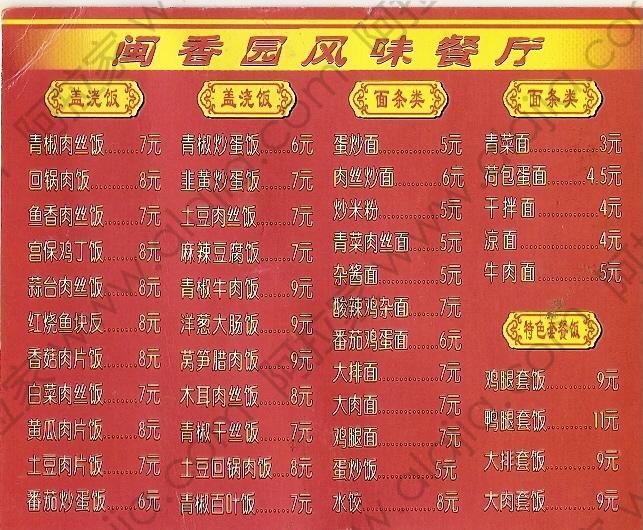 闽香园风味餐厅
盖浇饭
青椒肉丝饭........7元
回锅肉饭..........8元
鱼香肉丝饭........7元
宫保鸡丁饭........8元
蒜台肉丝饭........8元
红烧鱼块反........8元
香菇肉片饭........8元
白菜肉丝饭........7元
黄瓜肉片饭........8元
土豆肉片饭........7元
番茄炒蛋饭........6元
盖浇饭
青椒炒蛋饭........6元
韭黄炒蛋饭........7元
土豆肉丝饭........7元
麻辣豆腐饭........7元
青椒牛肉饭........9元
洋葱大肠饭........9元
莴笋腊肉饭........9元
木耳肉丝饭........8元
青椒干丝饭........7元
土豆回锅肉饭......8元
青椒百叶饭........7元
面条类
蛋炒面............5元
肉丝炒面..........6元
炒米粉............5元
青菜肉丝面........5元
杂酱面............5元
酸辣鸡杂面........7元
番茄鸡蛋面........6元
大排面............7元
大肉面............7元
鸡腿面............7元
蛋炒饭............5元
水饺..............8元
面条类
青菜面............3元
荷包蛋面..........4.5元
干拌面............4元
凉面..............4元
牛肉面............5元
特色套餐饭
鸡腿套饭..........9元
鸭腿套饭..........11元
大排套饭..........9元
大肉套饭..........9元